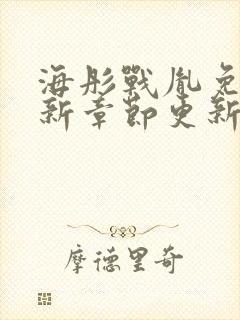 海彤戰胤免
新章節更新
摩德里奇